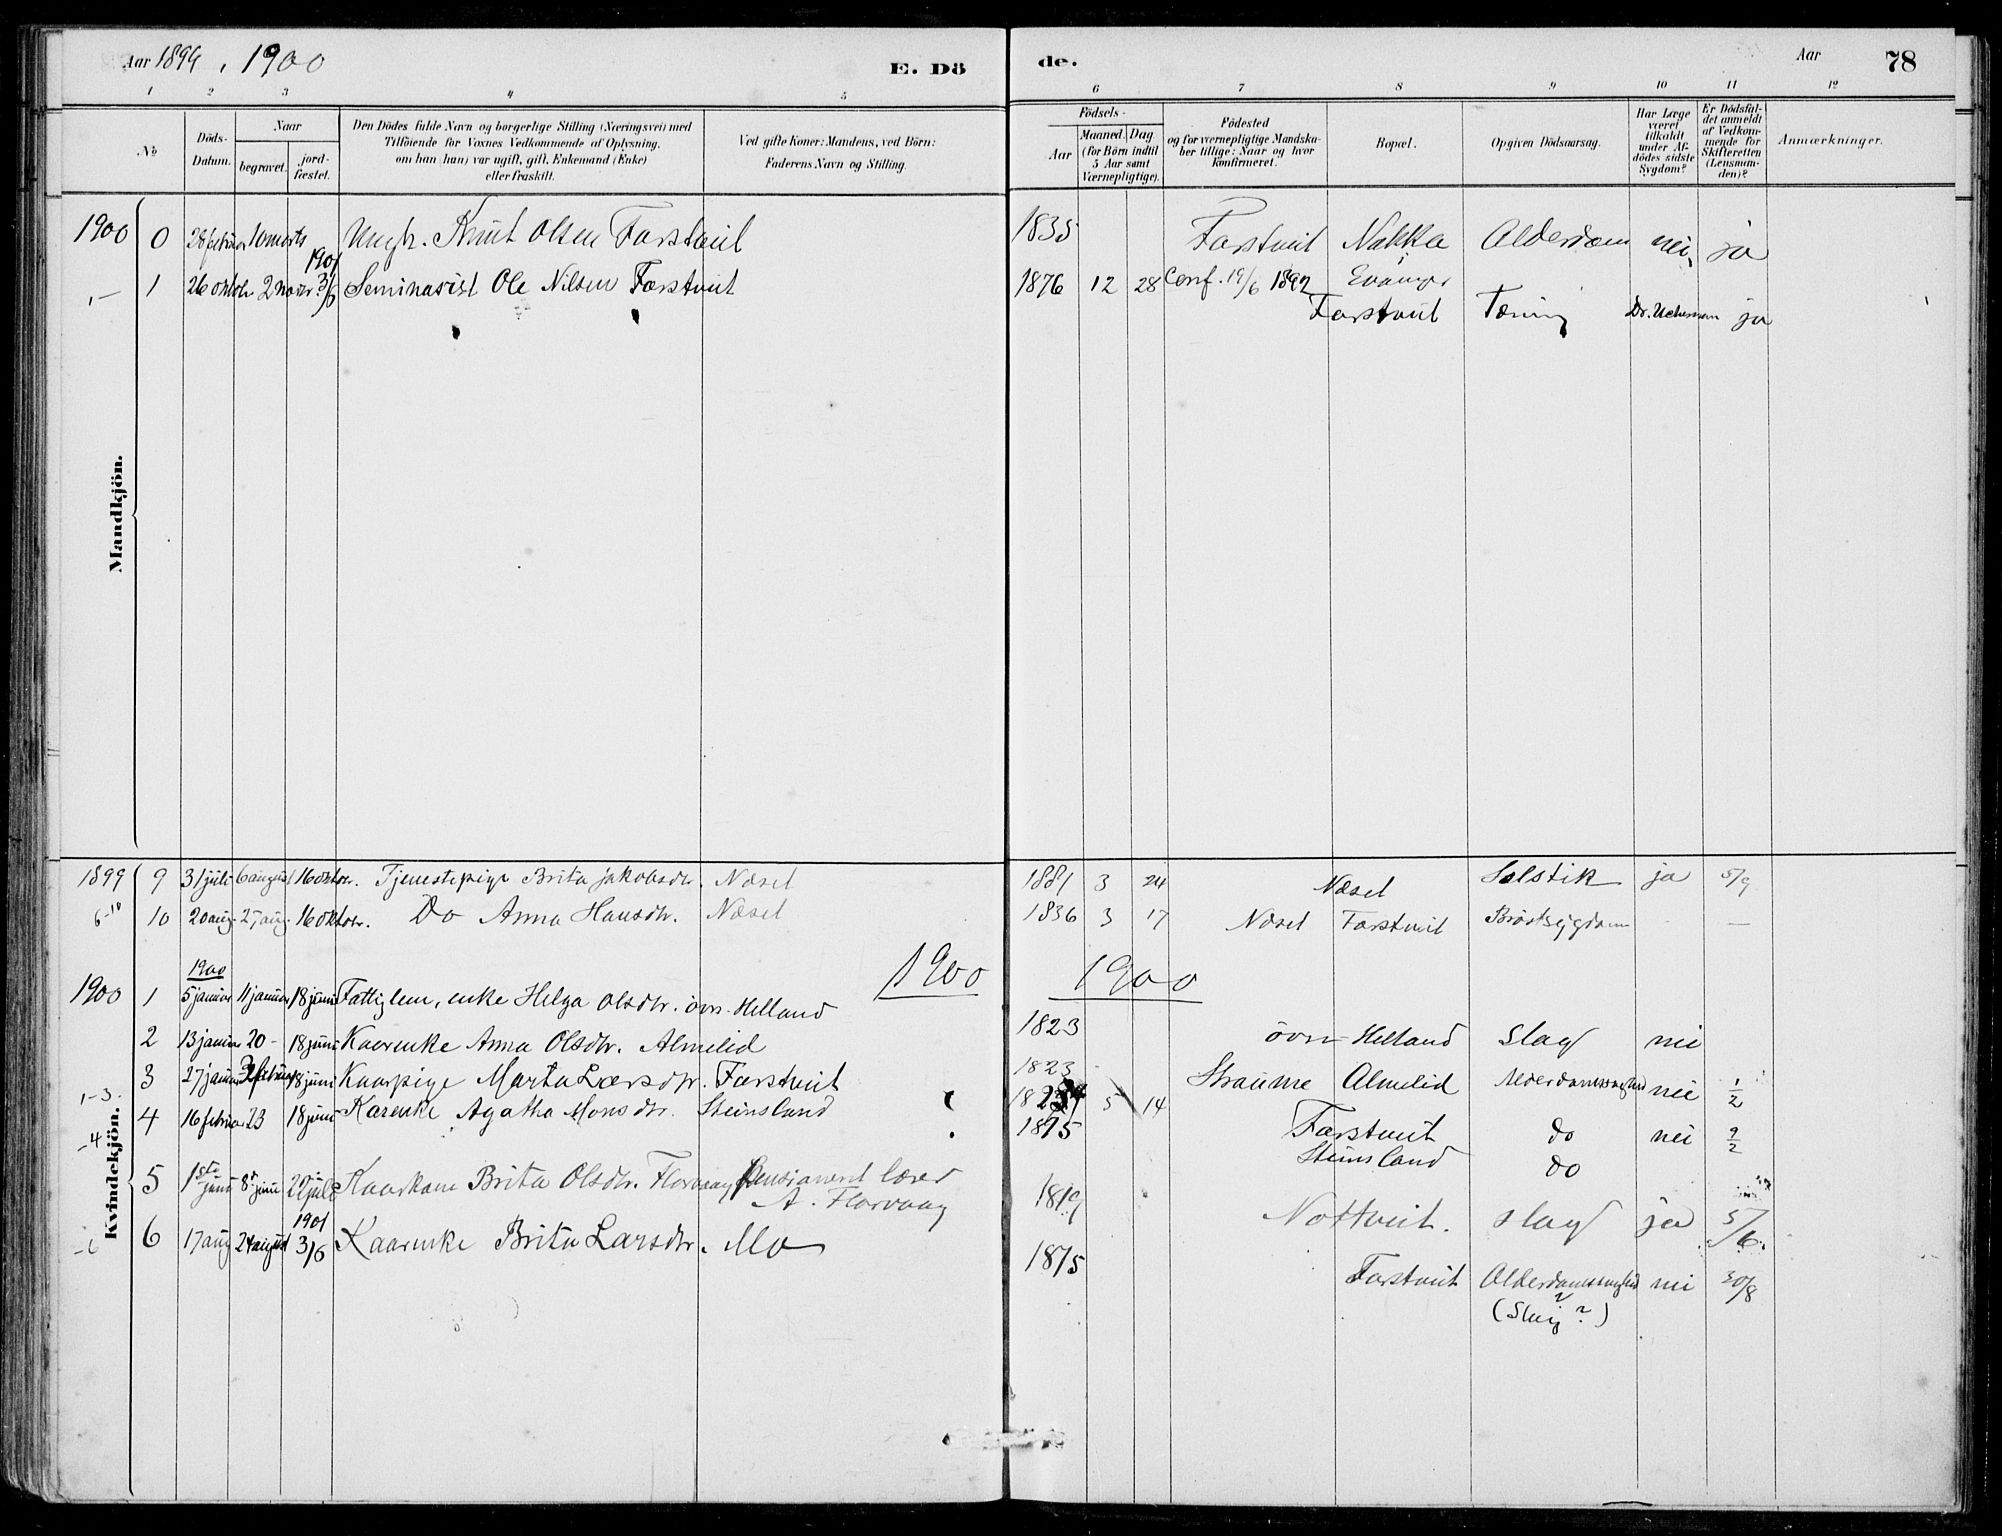 Aar 1899, 1900
E. Dö
de.
Aar
78
1 2 3 4 5 6 7 8 9 10 11 12
No
Döds-Datum.
Naar
begravet.
jord-fæstet.
Den Dödes fulde Navn og borgerlige Stilling (Næringsvei) med
Tilföiende for Voxnes Vedkommende af Oplysning.
om han (hun) var ugift, gift, Enkemand (Enke)
eller fraskilt.
Ved gifte Koner: Mandens, ved Börn:
Faderens Navn og Stilling.
Födsels-
Aar
Maaned. Dag
(for Börn indtil
5 Aar samt
Værnepligtige).
Födested
og for værnepligtige Mandska-
ber tillige: Naar og hvor
konfirmeret.
Bopæl.
Opgiven Dödsaarsag.
Har Læge
været
tilkaldt
under Af-
dödes sidste
Sygdom?
Er Dödsfal-
det anmeldt
af Vedkom-
mende for
Skifteretten
(Lensman-
den)?
Anmærkninger.
Mandkjön.
1900 0 28 februar 10 marts Ungk. Knut Olsen Farstveit 1835 Farstveit Nakka Alderdom nei ja
1 26 oktobr 2 novbr 1901 3/6 Seminarist Ole Nilsen Farstveit 1876 12 28 Conf. 19/6 1892 Evanger
Farstveit Tæring Dr. ja
Kvindekjön.
1899 9 31 juli 6 august 16 oktbr. Tjenestepige Brita Jakobsdtr. Næset 1881 3 24 Næset Solstik ja 5/9
6-10 10 20 aug. 27 aug. 16 oktobr. Do Anna Hansdtr. Næset 1836 3 17 Næset Farstveit Bröstsygdom —
1900 1900
1900 1 1900 5 januar 11 januar 18 juni Fattiglem, enke Helga Olsdtr. övr. Helland 1823 övr Helland Slag nei
2 13 januar 20 - 18 juni Kaarenke Anna Olsdtr. Almelid 1823 Straume Almelid Alderdomssvaghed nei 1/2
1-3. 3 27 januar 3 februar 18 juni Kaarpige Marta Larsdtr. Farstveit 5 14 Farstveit do nei 9/2
-4 4 16 februar 23 18 juni Karenke Agatha Monsdtr. Steinsland 1815 Steinsland do
5 1ste juni 8 juni 22 juli Kaarkone Brita Olsdtr. Florvaag Pensioneret lærer
A. Florvaag 1819 Nottveit. Slag ja 5/6.
-6 6 17 aug 24 august 1901 3/6 Kaarenke Brita Larsdtr. Mo 1815 Farstveit Alderdomssvaghed nei 30/8
(Slag?)